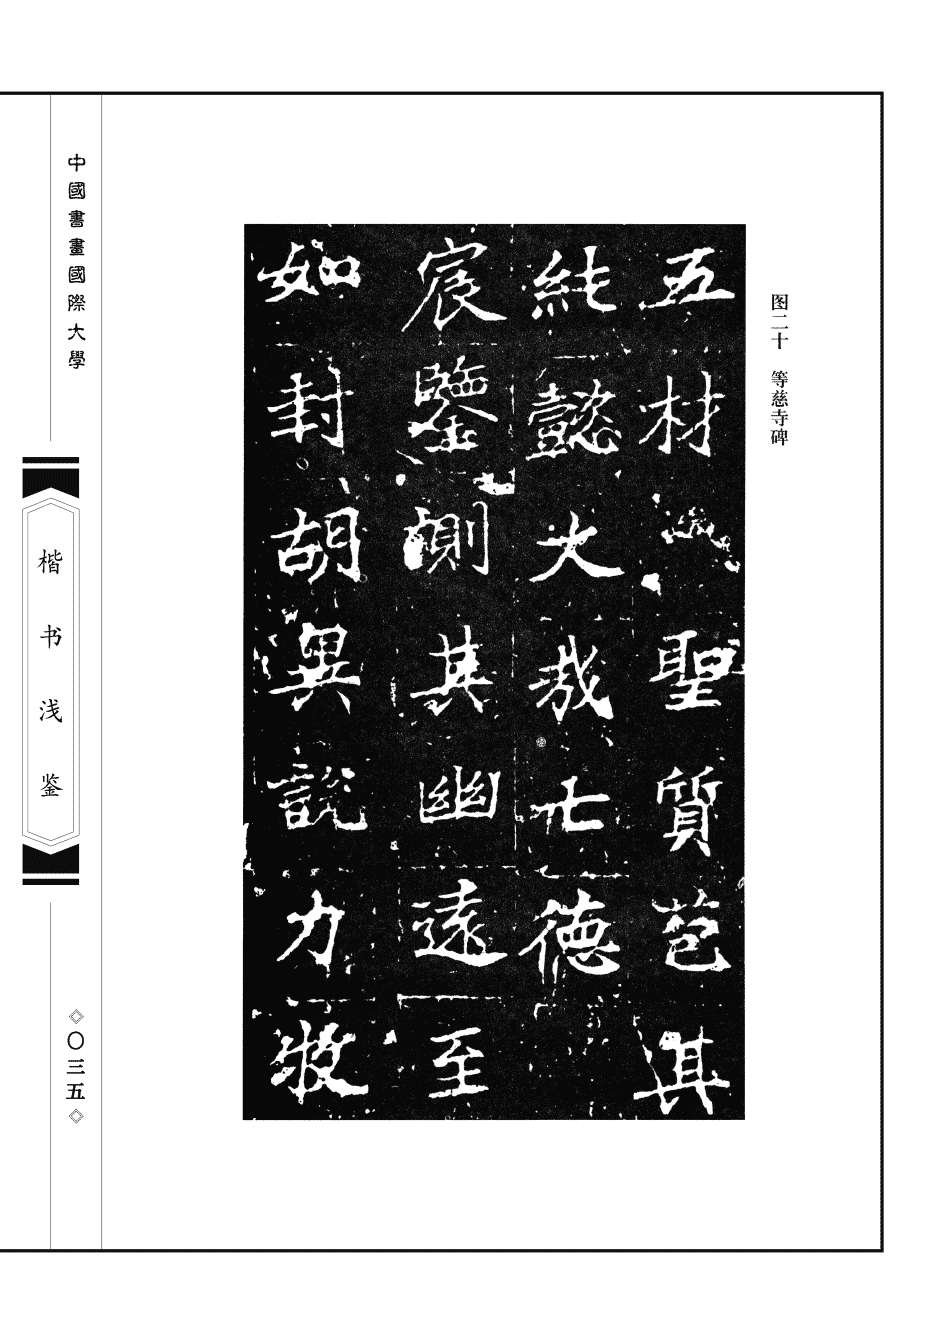 图二十　等慈寺碑
五材聖質苞其
純懿大哉亡德
宸鑒測其幽遠至
如封胡異說力牧
中國書畫國際大學
楷书浅鉴
〇三五